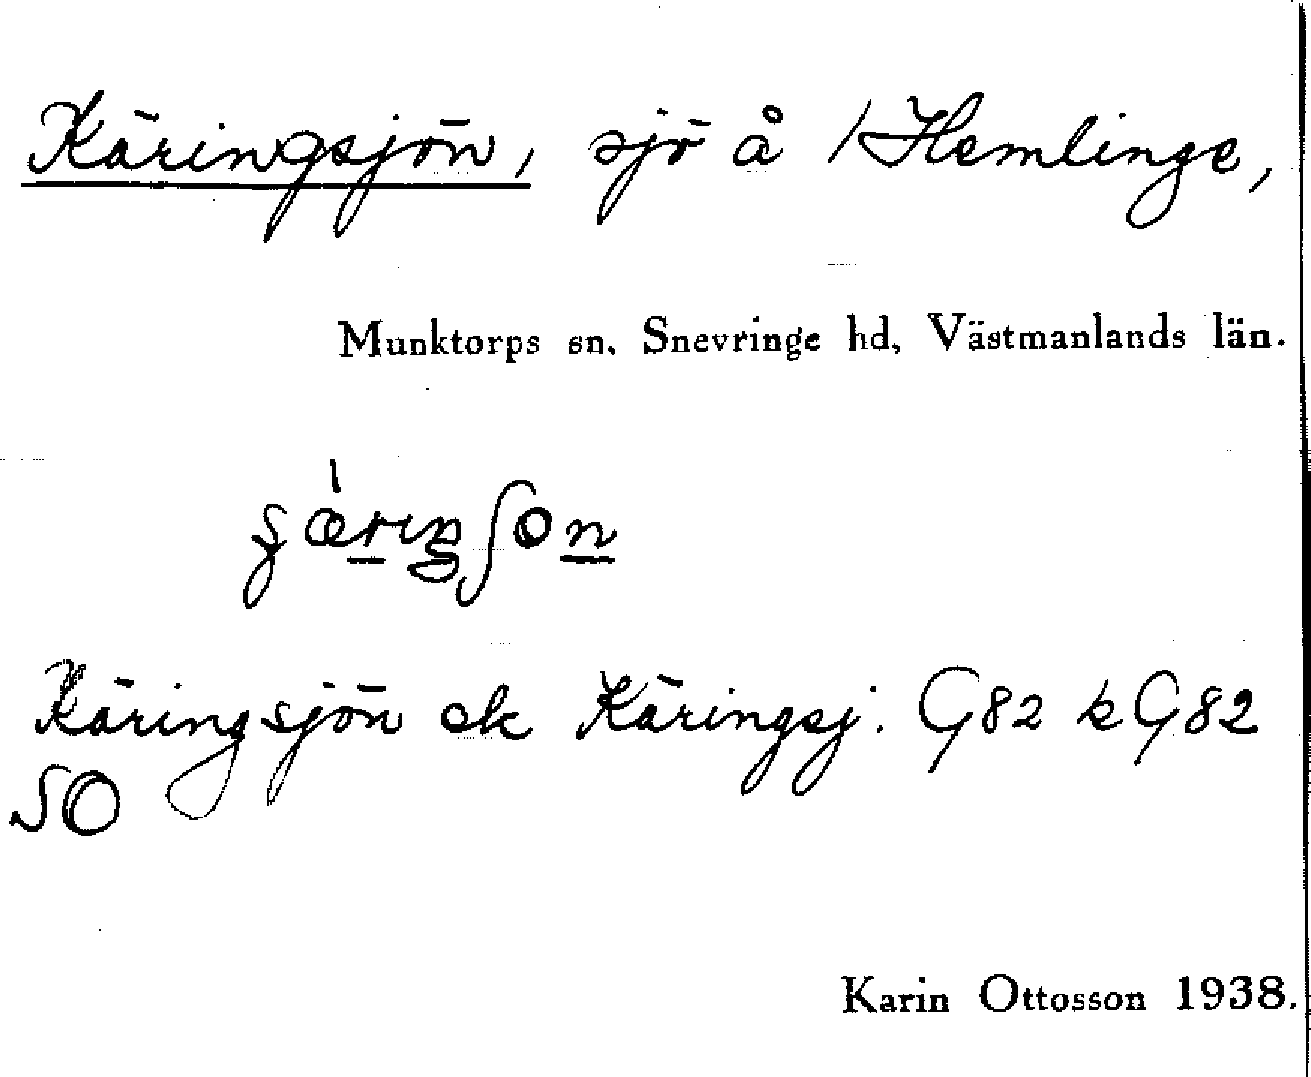 Käringsjön, sjö å /Hemlinge,
Munktorps sn, Snevringe hd, Västmanlands län.
Käringsjön ek Käringsj. G82 k G82
SO
Karin Ottosson 1938.